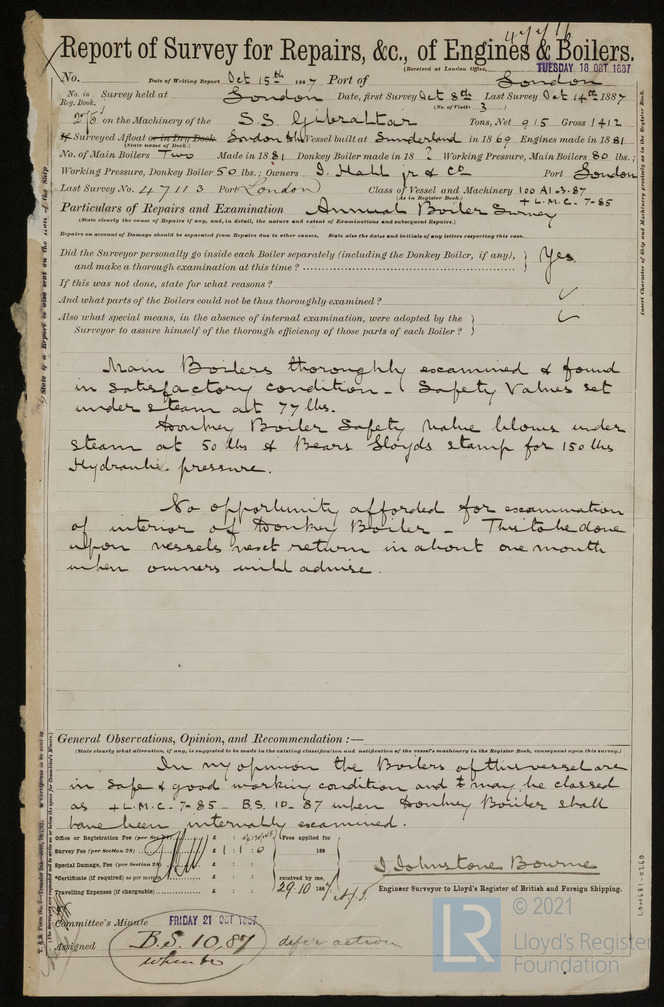 Report of Survey for Repairs, &c., of Engines & Boilers.
(Received at London Office,
TUESDAY 18 OCT 1887
No. Date of Writing Report Oct 15th 1887 Port of London
No. in Reg. Book. Survey held at London Date, first Survey Oct 8th Last Survey Oct 14th 1887
(No. of Visits 3 )
on the Machinery of the S.S. Gibraltar Tons, Net 915 Gross 1412
Surveyed Afloat or in Dry Dock London Vessel built at Sunderland in 1869 Engines made in 1881
(State name of Dock.)
No. of Main Boilers Two Made in 1881 Donkey Boiler made in 18 ? Working Pressure, Main Boilers 80 lbs.;
Working Pressure, Donkey Boiler 50 lbs.; Owners J. Hall jr & Co Port London
Last Survey No. 47113 Port London Class of Vessel and Machinery 100 A1-3-87
(As in Register Book.) + L.M.C. 7-85
Particulars of Repairs and Examination Annual Boiler Survey
(State clearly the cause of Repairs if any, and, in detail, the nature and extent of Examinations and subsequent Repairs.)
Repairs on account of Damage should be separated from Repairs due to other causes. State also the dates and initials of any letters respecting this case.
Did the Surveyor personally go inside each Boiler separately (including the Donkey Boiler, if any), and make a thorough examination at this time? Yes
If this was not done, state for what reasons?
And what parts of the Boilers could not be thus thoroughly examined?
Also what special means, in the absence of internal examination, were adopted by the
Surveyor to assure himself of the thorough efficiency of those parts of each Boiler?
Main Boilers thoroughly examined & found
in satisfactory condition - Safety Valves set
under steam at 77 lbs.
Donkey Boiler Safety Valve blows under
steam at 50 lbs & Bears Lloyds stamp for 150 lbs
Hydraulic pressure.
No opportunity afforded for examination
of interior of Donkey Boiler - This to be done
upon vessels next return in about one month
when owners will advise.
General Observations, Opinion, and Recommendation :—
(State clearly what alteration, if any, is suggested to be made in the existing classification and notification of the vessel's machinery in the Register Book, consequent upon this survey.)
In my opinion the Boilers of this vessel are
in safe & good working condition and may be classed
as + L.M.C. 7-85 - B.S. 10-87 when Donkey Boiler shall
have been internally examined.
Office or Registration Fee (per Sec £ : : Fees applied for
Survey Fee (per Section 28) £ 1 : 1 : 0 188
Special Damage, Fee (per Section 28) £ : :
*Certificate (if required) as per margin £ : : received by me,
Travelling Expenses (if chargeable) £ : : 29.10 188
J Johnstone Bourne
Engineer Surveyor to Lloyd's Register of British and Foreign Shipping.
Committee's Minute FRIDAY 21 OCT 1887
Assigned B.S. 10,87 defer action
when
Insert Character of Ship and Machinery precisely as in the Register Book.
LON681-0260
© 2021
LR
Lloyd's Register
Foundation